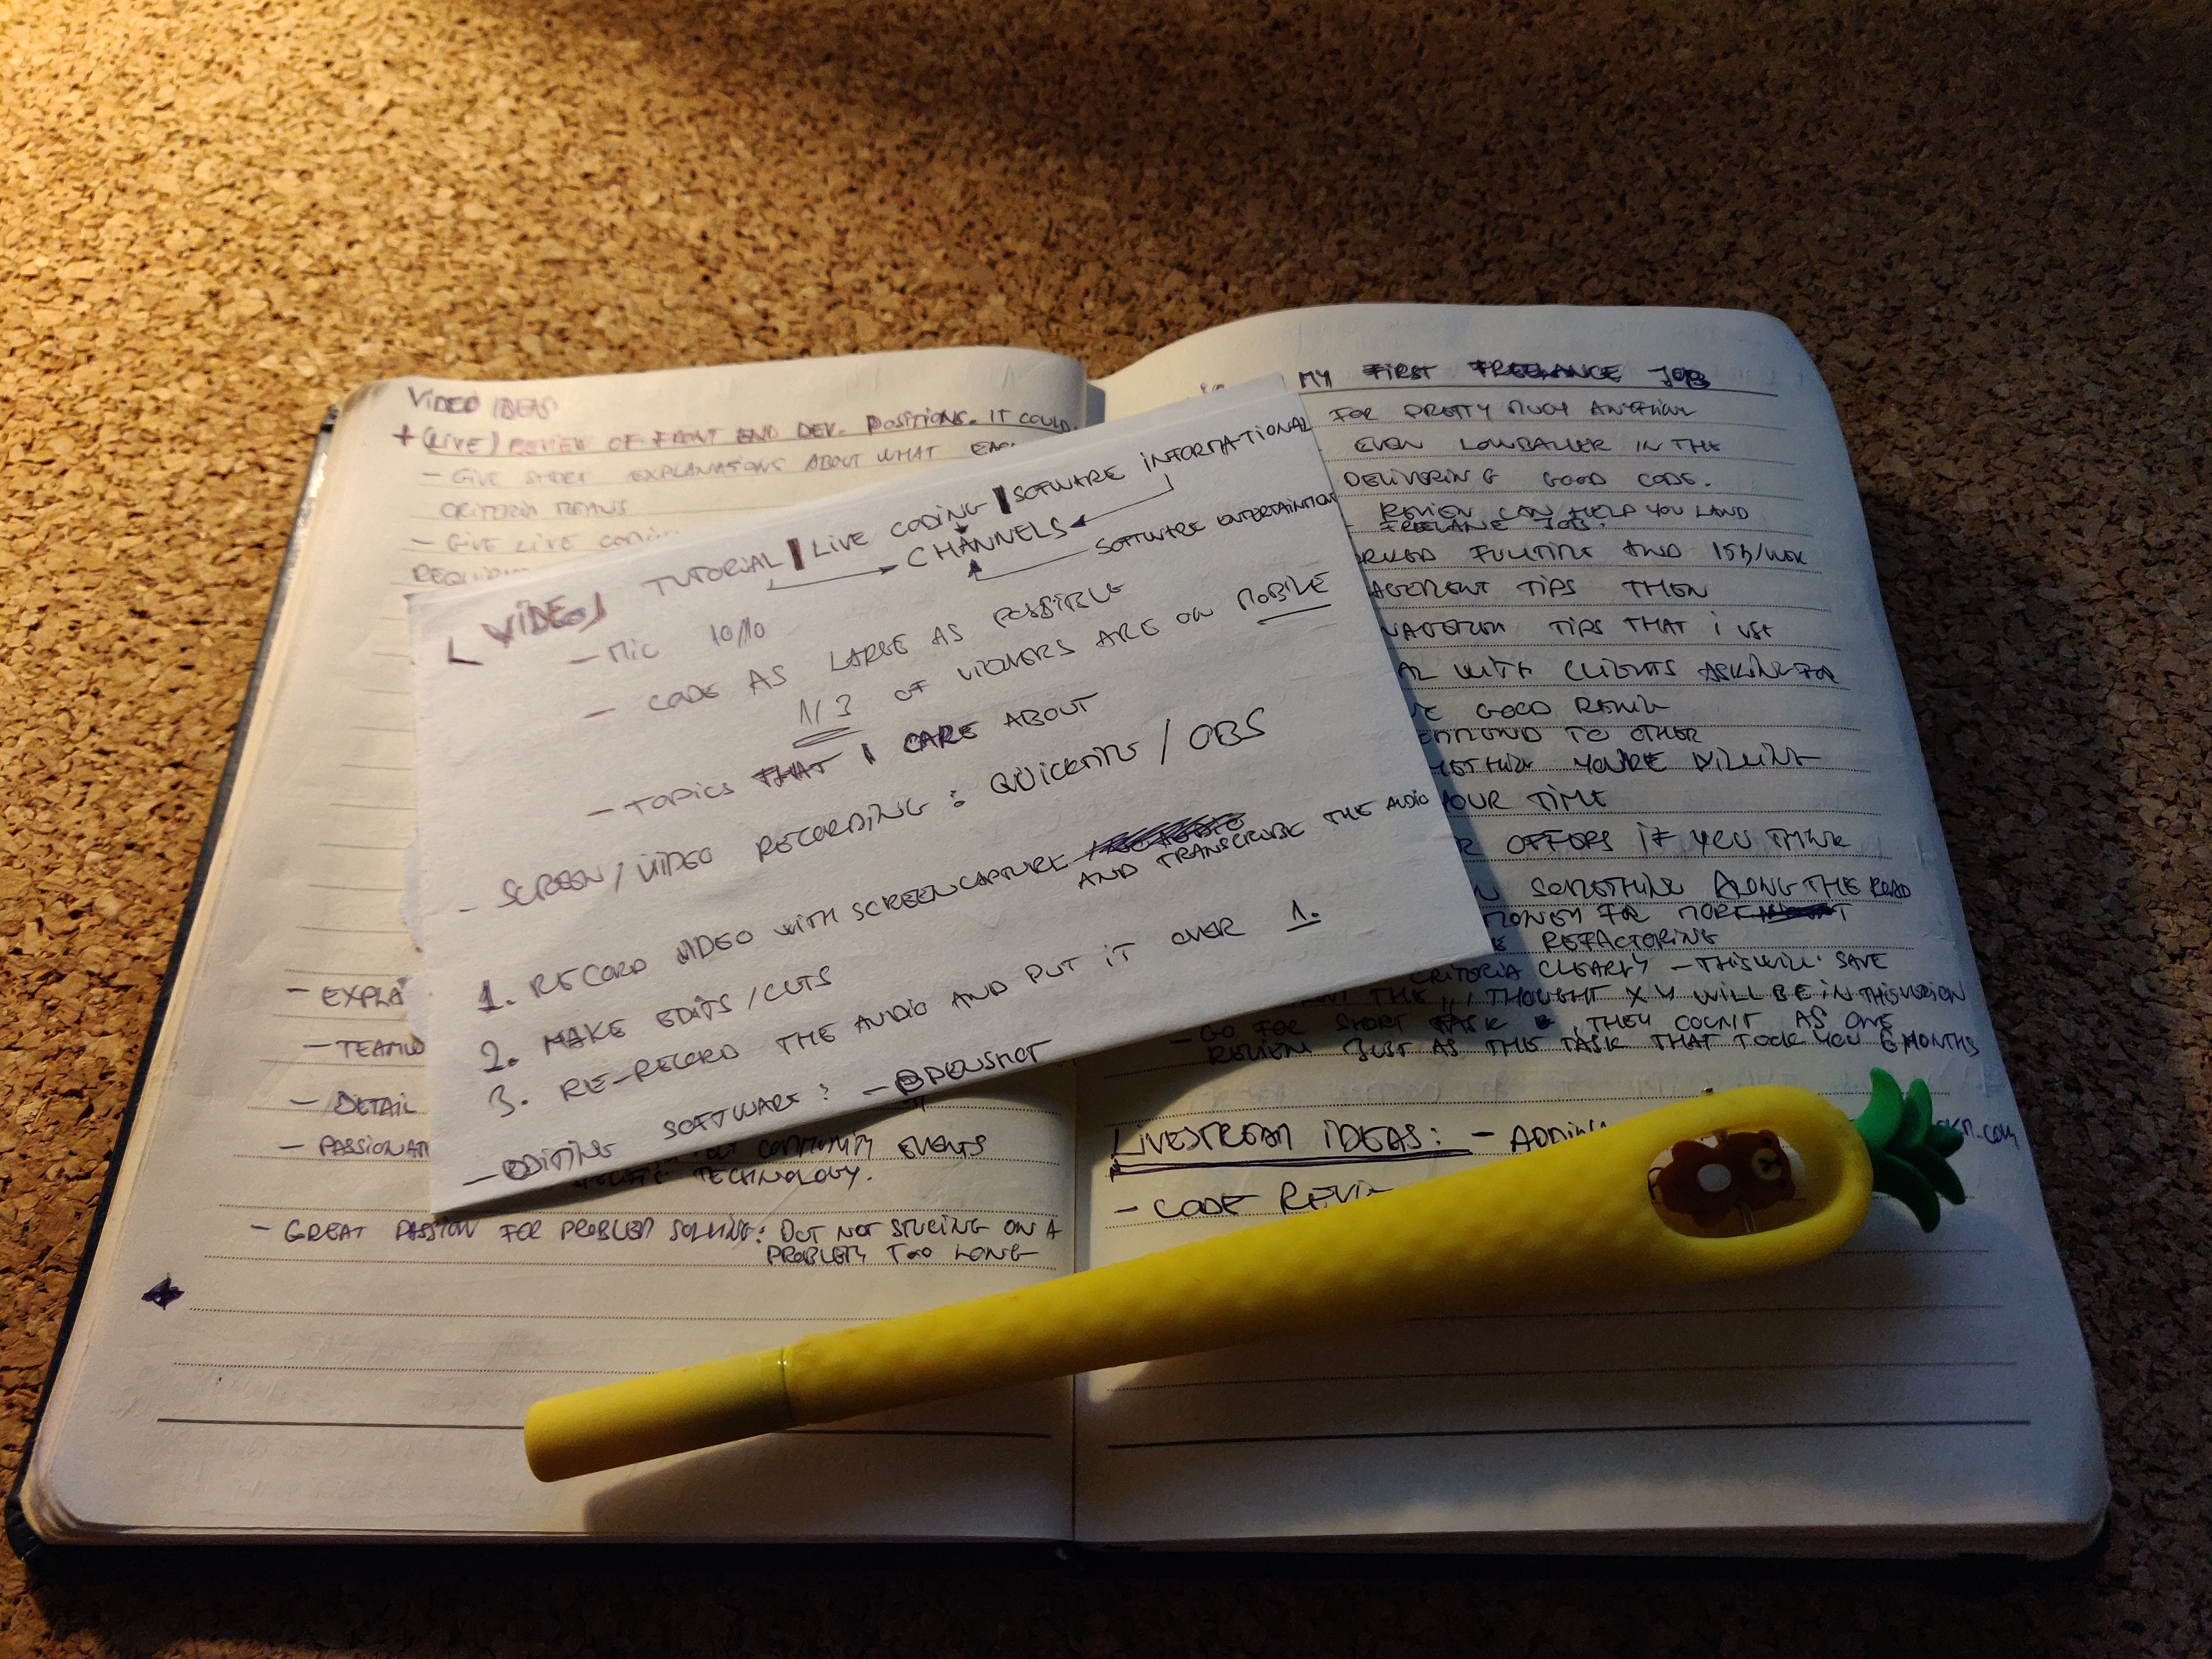 VIDEO IDEAS
+ (LIVE) REVIEW OF FRONT END DEV. POSITIONS. IT COULD
- GIVE SHORT EXPLANATIONS ABOUT WHAT EACH
CRITERIA MEANS
- GIVE LIVE CODING
- EXPLAI
- TEAMW
- DETAIL
- PASSIONAT
COMMUNITY EVENTS
TECHNOLOGY.
- GREAT PASSION FOR PROBLEM SOLVING: BUT NOT STUCING ON A
PROBLEM TOO LONG
[VIDEO] TUTORIAL | LIVE CODING | SOFTWARE INFORMATIONAL
CHANNELS
SOFTWARE ENTERTAINTION
- MIC 10/10
- CODE AS LARGE AS POSSIBLE
1/3 OF VIEWERS ARE ON MOBILE
- TOPICS THAT I CARE ABOUT
- SCREEN/VIDEO RECORDING: QUICKTIME / OBS
1. RECORD VIDEO WITH SCREENCAPTURE
AND TRANSCRIBE THE AUDIO
2. MAKE EDITS/CUTS
3. RE-RECORD THE AUDIO AND PUT IT OVER 1.
- EDITING SOFTWARE: - OPENSHOT
MY FIRST FREELANCE JOB
FOR PRETTY MUCH ANYTHING
EVEN LOWBALLER IN THE
DELIVERING GOOD CODE.
REVIEW CAN HELP YOU LAND
FREELANE JOB.
ORKED FULLTIME AND 15h/WEEK
AGEMENT TIPS THEN
TIPS THAT I USE
WITH CLIENTS ASKING FOR
GOOD REVIEW
TO OTHER
YOU'RE
YOUR TIME
OFFERS IF YOU THINK
SOMETHING ALONG THE ROAD
MONEY FOR MORE
REFACTORING
CRITERIA CLEARLY - THIS WILL SAVE
THE ,, I THOUGHT X Y WILL BE IN THIS VERSION
- GO FOR SHORT TASK, THEY COUNT AS ONE
REVIEW JUST AS THIS TASK THAT TOOK YOU 6 MONTHS
LIVESTREAM IDEAS: - ADDING
.com
- CODE REVIE